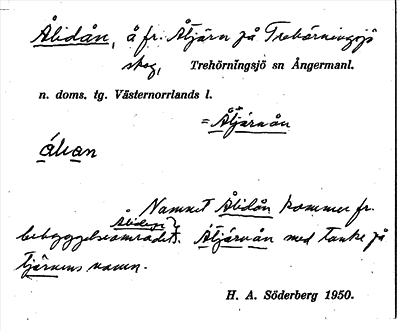 Ålidån, å fr. Åtjärn på Trehörningsjö
skog, Trehörningsjö sn Ångermanl.
n. doms. tg. Västernorrlands l.
= Åtjärnån
ålian
Namnet Ålidån kommer fr.
bebyggelseområdet. Åtjärnån med tanke på
tjärnens namn.
H. A. Söderberg 1950.